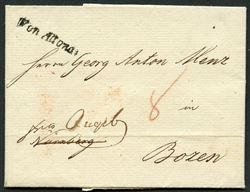 Von Altona
Herrn Georg Anton Menz
8
in
Augsb
Nürnberg
Bozen